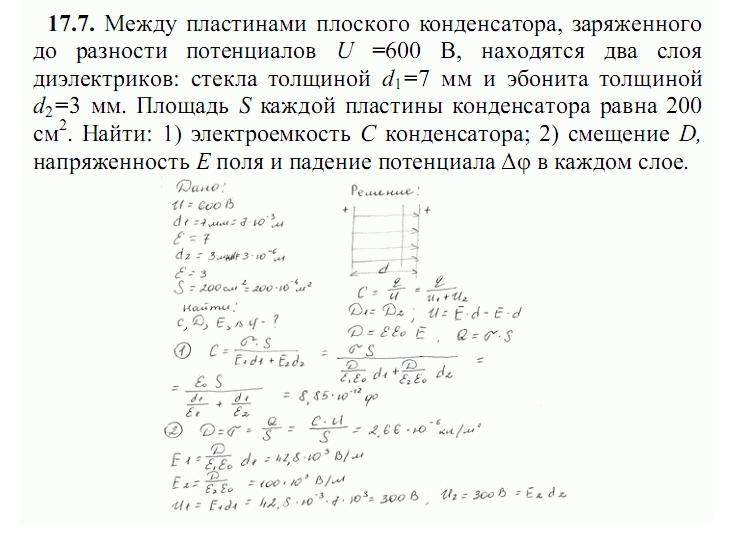 17.7. Между пластинами плоского конденсатора, заряженного
до разности потенциалов U =600 В, находятся два слоя
диэлектриков: стекла толщиной d₁=7 мм и эбонита толщиной
d₂=3 мм. Площадь S каждой пластины конденсатора равна 200
см². Найти: 1) электроемкость C конденсатора; 2) смещение D,
напряженность E поля и падение потенциала Δφ в каждом слое.
Дано:
U = 600 В
d1 = 7 мм = 7·10⁻³ м
ε = 7
d2 = 3 3·10⁻⁶ м
ε = 3
S = 200 см² = 200·10⁻⁴ м²
Найти:
C, D, E, Δφ - ?
Решение:
+ +
d
C = q/U = q/(U1+U2)
D1 = D2 ; U = E·d - E·d
D = εε0 E , Q = σ·S
① C = σ·S/(E1d1 + E2d2) = σS/(D/(ε1ε0) d1 + D/(ε2ε0) d2) =
= ε0 S/(d1/ε1 + d1/ε2) = 8,85·10⁻¹² ф
② D = σ = Q/S = C·U/S = 2,66·10⁻⁶ кл/м²
E1 = D/(ε1ε0) d1 = 42,8·10³ В/м
E2 = D/(ε2ε0) = 100·10³ В/м
U1 = E1d1 = 42,8·10⁻³·7·10³ = 300 В , U2 = 300 В = E2d2